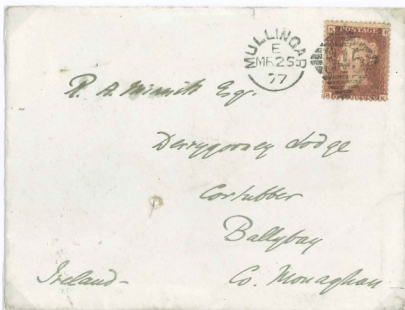 MULLINGAR
E
MR 25
77
POSTAGE
R. A. Minnitt Esqr.
Derrygooney Lodge
Cortubber
Ballybay
Ireland - Co. Monaghan